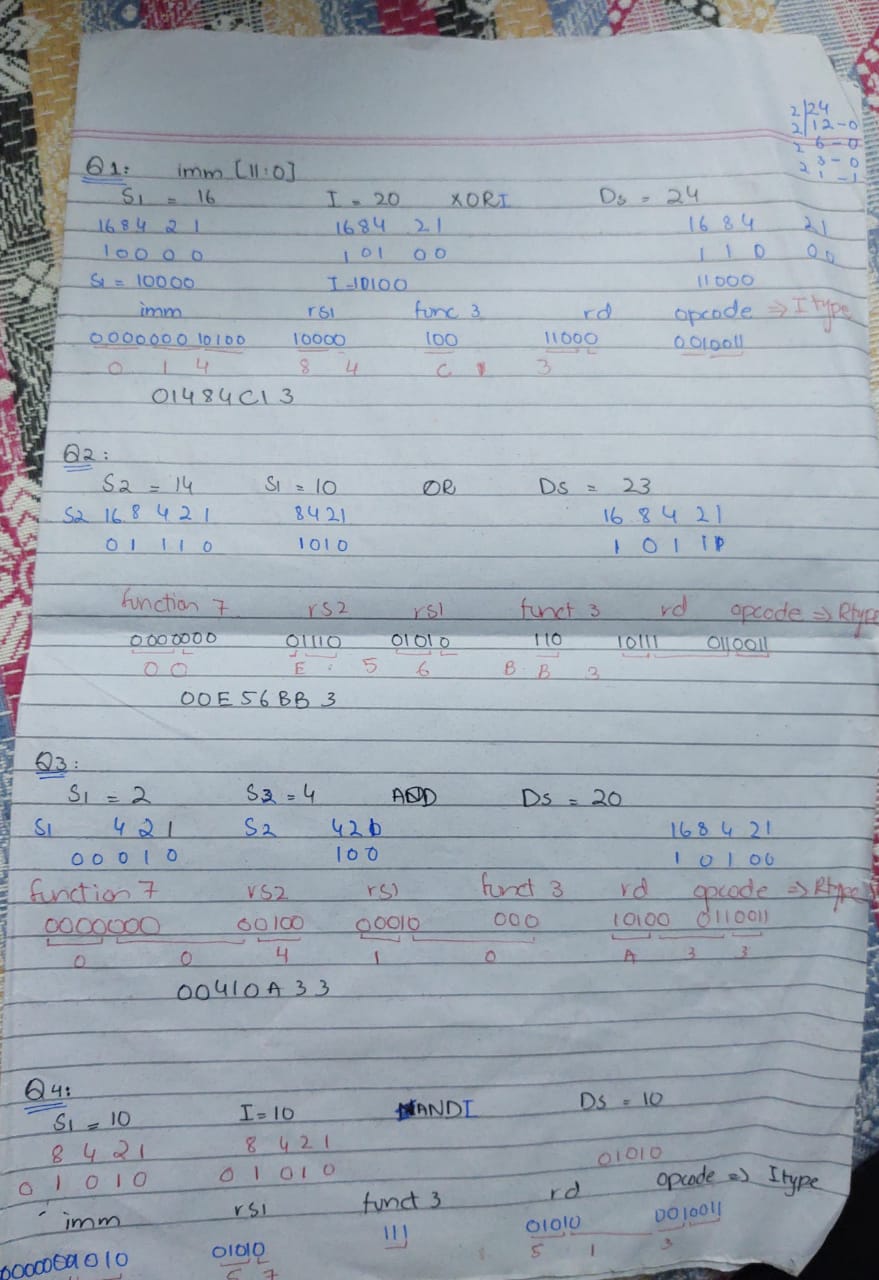 2 24
2 12-0
2 6-0
2 3-0
1-1
Q1: imm [11:0]
S1 = 16 I = 20 XORI Ds = 24
16 8 4 2 1 16 8 4 2 1 16 8 4 2 1
1 0 0 0 0 1 0 1 0 0 1 1 0 0 0
S1 = 10000 I = 10100 11000
imm rs1 func 3 rd opcode => I type
0000000 10100 10000 100 11000 0010011
0 1 4 8 4 C 1 3
01484C13
Q2:
S2 = 14 S1 = 10 OR Ds = 23
S2 16 8 4 2 1 8 4 2 1 16 8 4 2 1
0 1 1 1 0 1010 1 0 1 1 1
function 7 rs2 rs1 funct 3 rd opcode => Rtype
0000000 01110 01010 110 10111 0110011
0 0 E 5 6 B B 3
00E56BB3
Q3:
S1 = 2 S2 = 4 ADD Ds = 20
S1 4 2 1 S2 4 2 1 16 8 4 2 1
0 0 0 1 0 1 0 0 1 0 1 0 0
function 7 rs2 rs1 funct 3 rd opcode => Rtype
0000000 00100 00010 000 10100 0110011
0 0 4 1 0 A 3 3
00410A33
Q4:
S1 = 10 I = 10 ANDI Ds = 10
8 4 2 1 8 4 2 1
0 1 0 1 0 0 1 0 1 0 01010
imm rs1 funct 3 rd opcode => I type
01010 111 01010 0010011
5 7 5 1 3